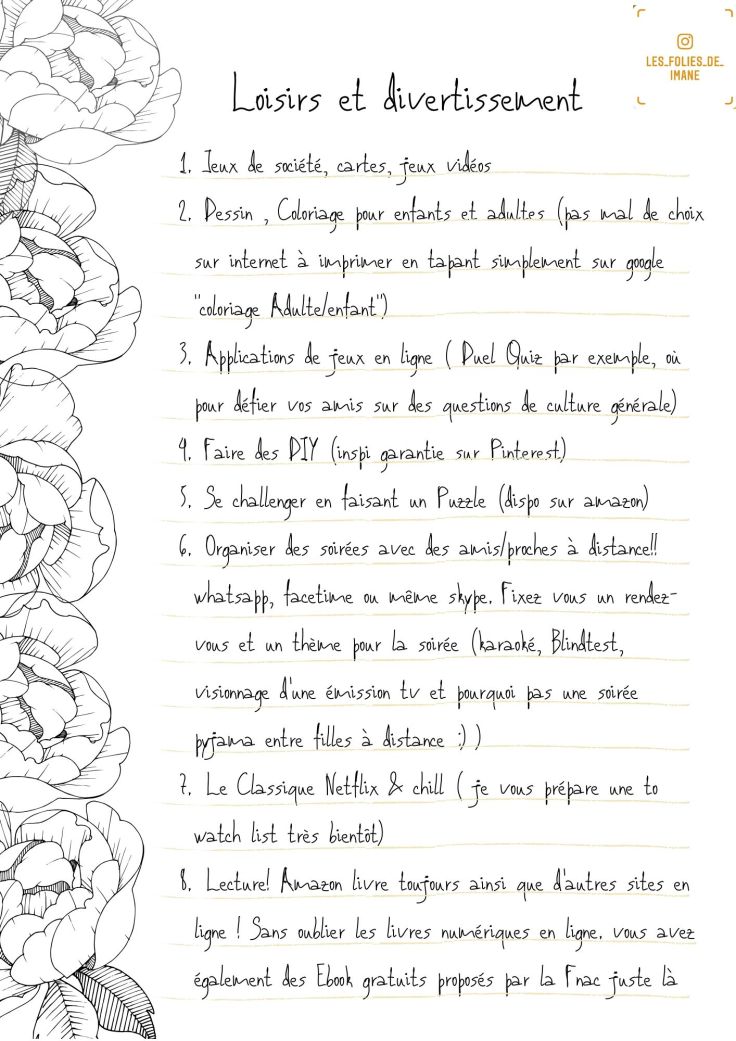 LES_FOLIES_DE_
IMANE
Loisirs et divertissement
1. Jeux de société, cartes, jeux vidéos
2. Dessin , Coloriage pour enfants et adultes (pas mal de choix
sur internet à imprimer en tapant simplement sur google
"coloriage Adulte/enfant")
3. Applications de jeux en ligne ( Duel Quiz par exemple, où
pour défier vos amis sur des questions de culture générale)
4. Faire des DIY (inspi garantie sur Pinterest)
5. Se challenger en faisant un Puzzle (dispo sur amazon)
6. Organiser des soirées avec des amis/proches à distance!!
whatsapp, facetime ou même skype. Fixez vous un rendez-
vous et un thème pour la soirée (karaoké, Blindtest,
visionnage d'une émission tv et pourquoi pas une soirée
pyjama entre filles à distance :) )
7. Le Classique Netflix & chill ( je vous prépare une to
watch list très bientôt)
8. Lecture! Amazon livre toujours ainsi que d'autres sites en
ligne ! Sans oublier les livres numériques en ligne. vous avez
également des Ebook gratuits proposés par la Fnac juste là